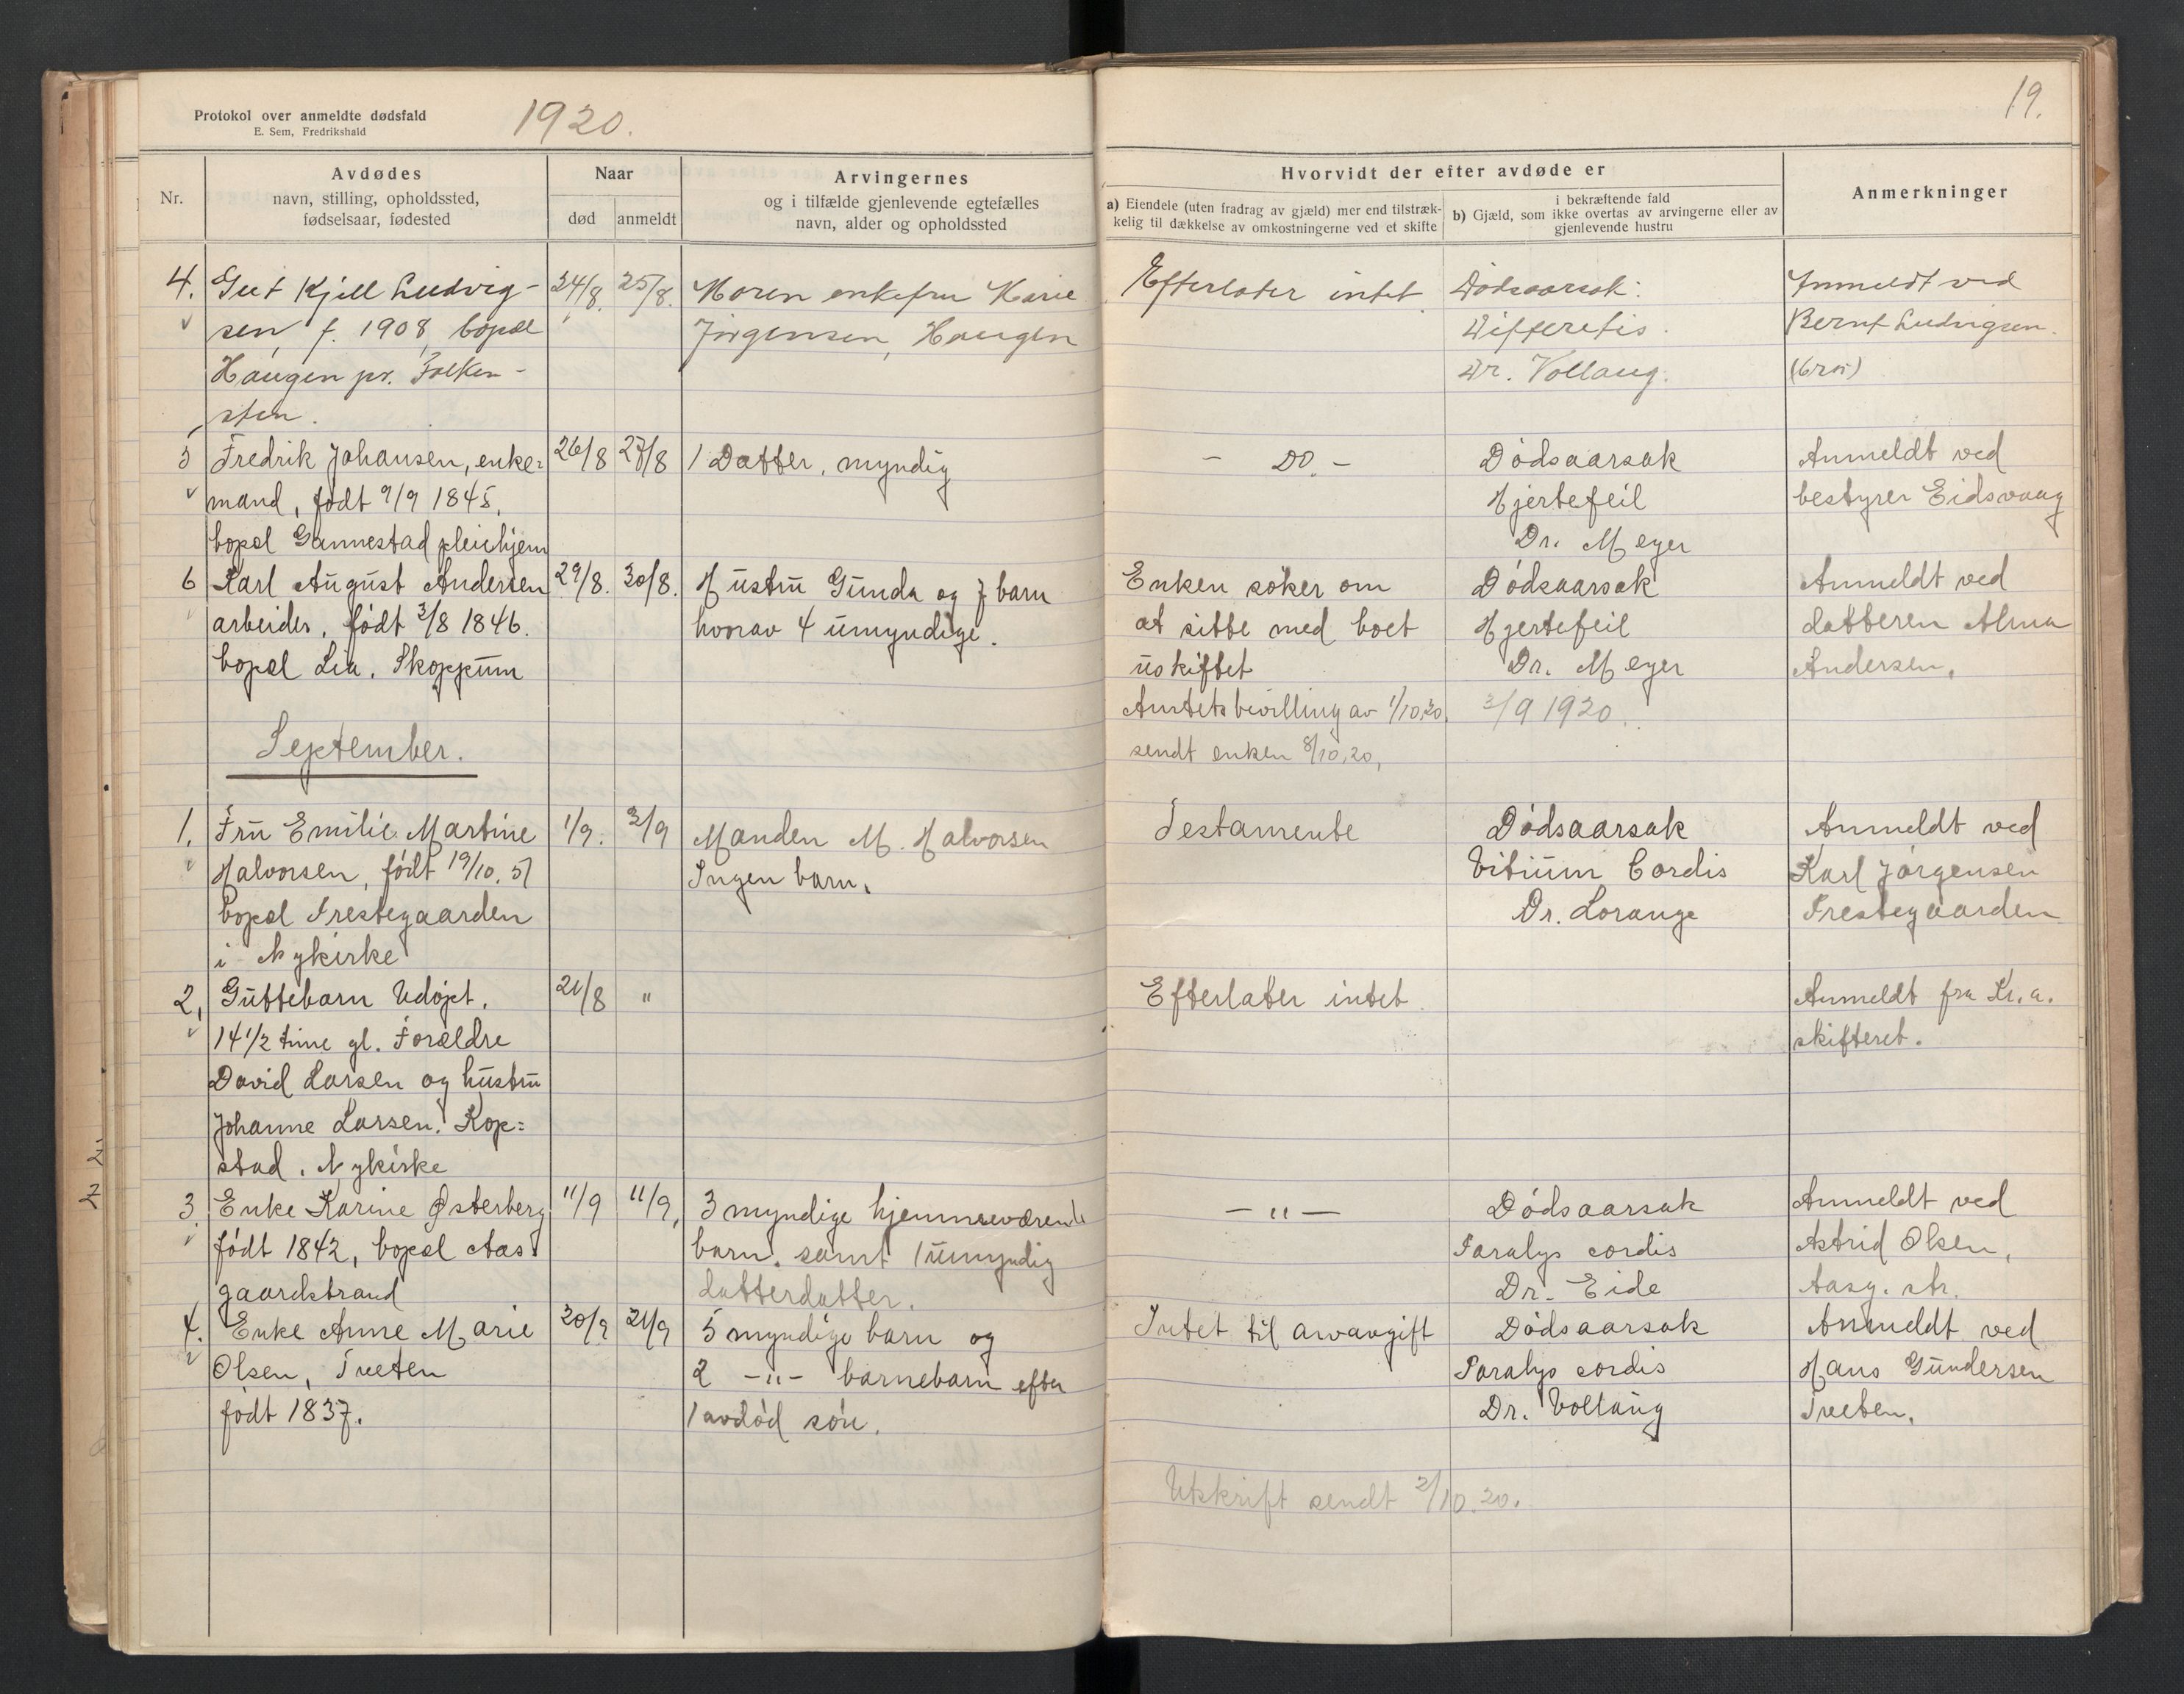 Protokol over anmeldte dødsfald
E. Sem, Fredrikshald
1920.
19.
Nr.
Avdødes
navn, stilling, opholdssted,
fødselsaar, fødested
Naar
død
anmeldt
Arvingernes
og i tilfælde gjenlevende egtefælles
navn, alder og opholdssted
Hvorvidt der efter avdøde er
a) Eiendele (uten fradrag av gjæld) mer end tilstræk-
kelig til dækkelse av omkostningerne ved et skifte
i bekræftende fald
b) Gjæld, som ikke overtas av arvingerne eller av
gjenlevende hustru
Anmerkninger
4. Gut Kjell Ludvig-
sen, f. 1908, bopæl
Haugen pr. Falken-
sten.
24/8. 25/8.
Moren enkefru Karie
Jørgensen, Haugen
Efterlater intet
Dødsaarsak:
Difteritis.
Dr. Vollaug.
Anmeldt ved
Bernt Ludvigsen.
(bror)
5 Fredrik Johansen, enke=
mand, født 9/9 1845,
bopæl Gannestad pleiehjem
26/8 27/8
1 Datter, myndig
- Do. -
Dødsaarsak
Hjertefeil
Dr. Meyer
Anmeldt ved
bestyrer Eidsvaag
6 Karl August Andersen
arbeider, født 3/8 1846.
bopæl Lia, Skoppum
29/8. 30/8.
Hustru Gunda og 7 barn
hvorav 4 umyndige.
Enken søker om
at sitte med boet
uskiftet
Amtets bevilling av 1/10.20.
sendt enken 8/10.20,
Dødsaarsak
Hjertefeil
Dr. Meyer
3/9 1920.
Anmeldt ved
datteren Alma
Andersen.
September.
1. Fru Emilie Martine
Halvorsen, født 19/10.51
bopæl Prestegaarden
i Nykirke
1/9. 3/9
Manden M. Halvorsen
Ingen barn.
Testamente
Dødsaarsak
Vitium Cordis
Dr. Lorange
Anmeldt ved
Karl Jørgensen
Prestegaarden
2, Guttebarn Udøpt.
14 1/2 time gl. Forældre
David Larsen og hustru
Johanne Larsen. Kop=
stad, Nykirke
21/8 "
Efterlater intet.
Anmeldt fra Kr.a.
skifteret.
3. Enke Karine Østerberg
født 1842, bopæl Aas
gaardstrand
11/9 11/9,
3 myndige hjemmeværende
barn. samt 1 umyndig
datterdatter.
- " -
Dødsaarsak
Paralys cordis
Dr. Eide
Anmeldt ved
Astrid Olsen,
Aasg. str.
4. Enke Anne Marie
Olsen, Tveten
født 1837.
20/9 21/9
5 myndige barn og
2 -"- barnebarn efter
1 avdød søn.
Intet til arvavgift
Dødsaarsak
Paralys cordis
Dr. Vollaug
Anmeldt ved
Hans Gundersen
Tveten.
Utskrift sendt 2/10.20.
2 2